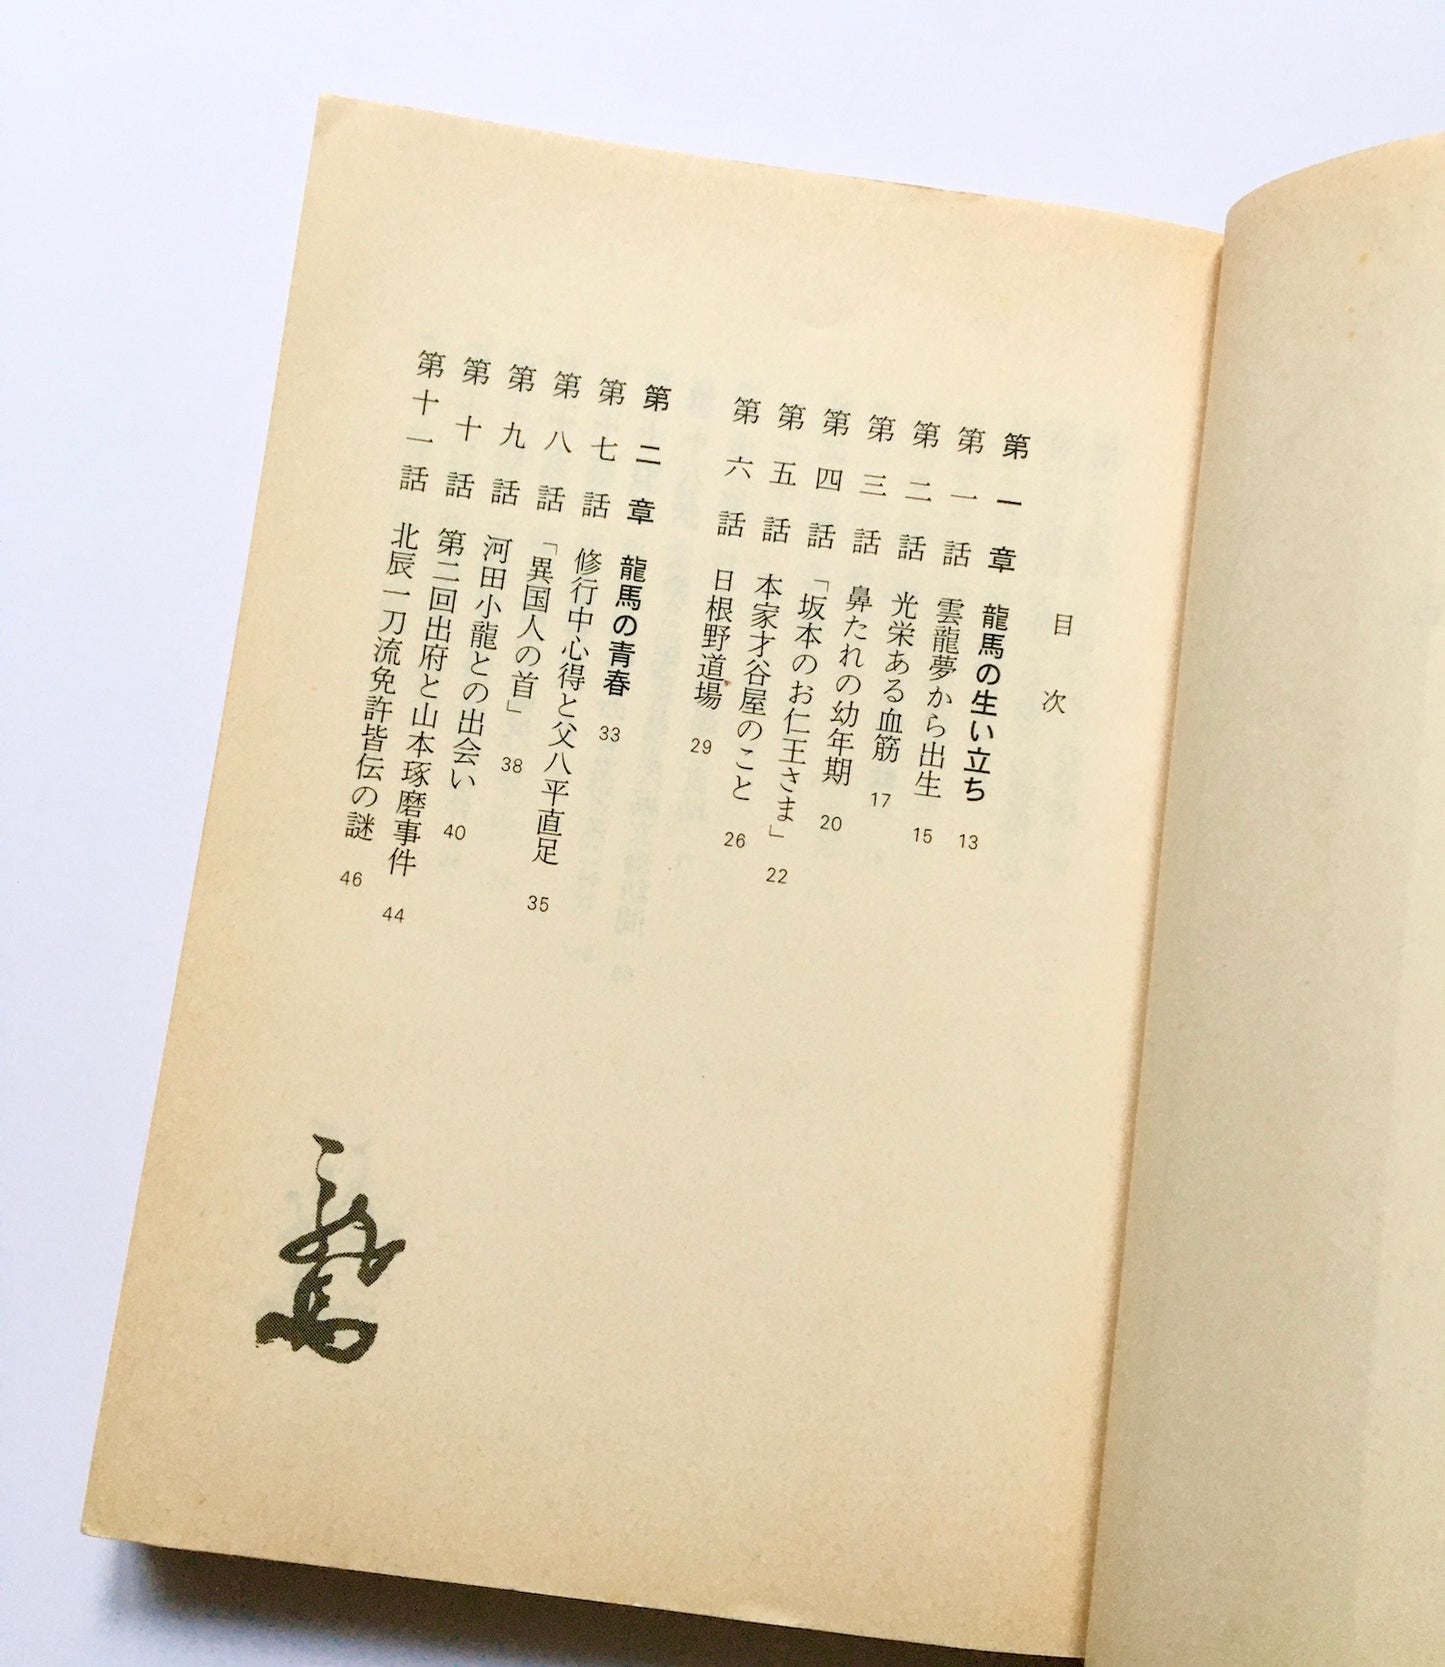 目次
第一章 龍馬の生い立ち 13
第一話 雲龍夢から出生 15
第二話 光栄ある血筋 17
第三話 鼻たれの幼年期 20
第四話 「坂本のお仁王さま」 22
第五話 本家才谷屋のこと 26
第六話 日根野道場 29
第二章 龍馬の青春 33
第七話 修行中心得と父八平直足 35
第八話 「異国人の首」 38
第九話 河田小龍との出会い 40
第十話 第二回出府と山本琢磨事件 44
第十一話 北辰一刀流免許皆伝の謎 46
龍馬